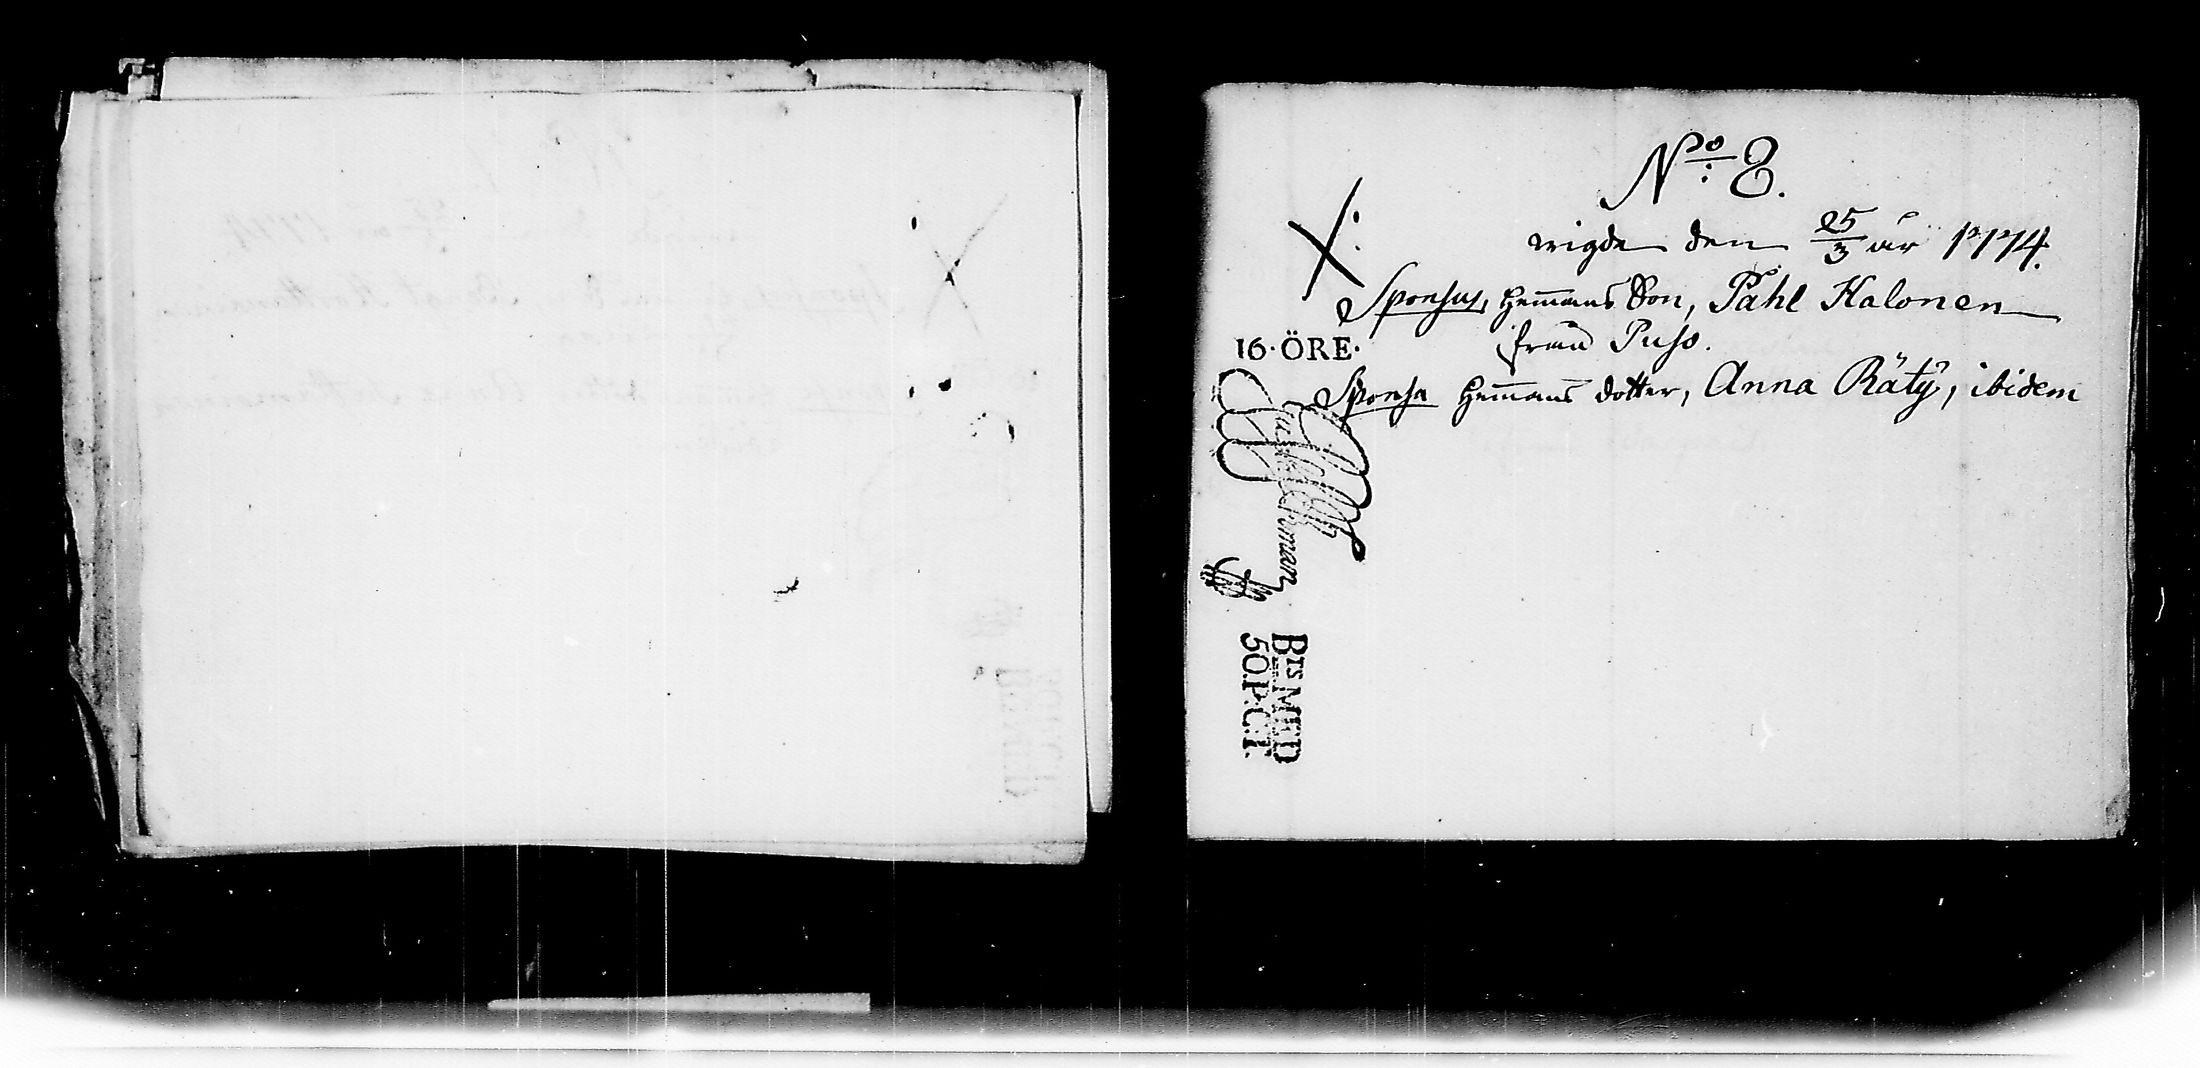 No 8.
wigde den 25/3 år 1774.
Sponsus, Hem̄ans Son, Påhl Halonen
från Puso.
16·ÖRE·
Sponsa Hem̄ans dotter, Anna Räty, ibidem
BTS MED
50.P.CT.